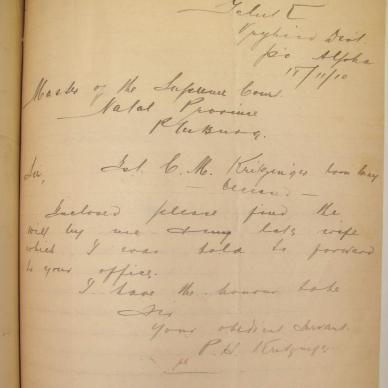 Vryheid Dist.
p/o Alpha
15/11/10
Master of the Supreme Cour.
Natal Province
PMBurg.
Sir,
Est. C. M. Kritzinger born
Decease
Inclosed please find the
will by me & my late wife
which I was told to forward
to your office.
I have the honour to be
Sir
Your obedient Servant.
P. H. Kritzinger